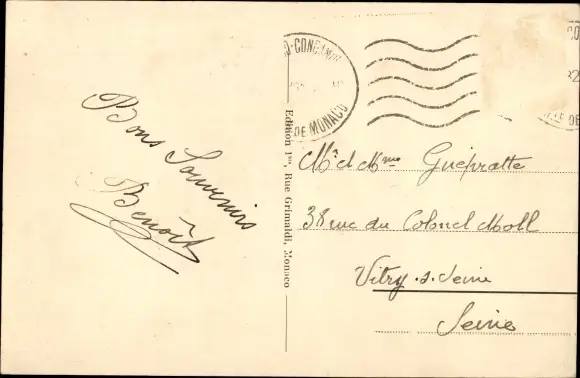 Bons Souvenirs
Benoît
Edition 1re, Rue Grimaldi, Monaco
DE MONACO
Mr et Mme Guépratte
38 rue du Colonel Moll
Vitry .s. Seine
Seine